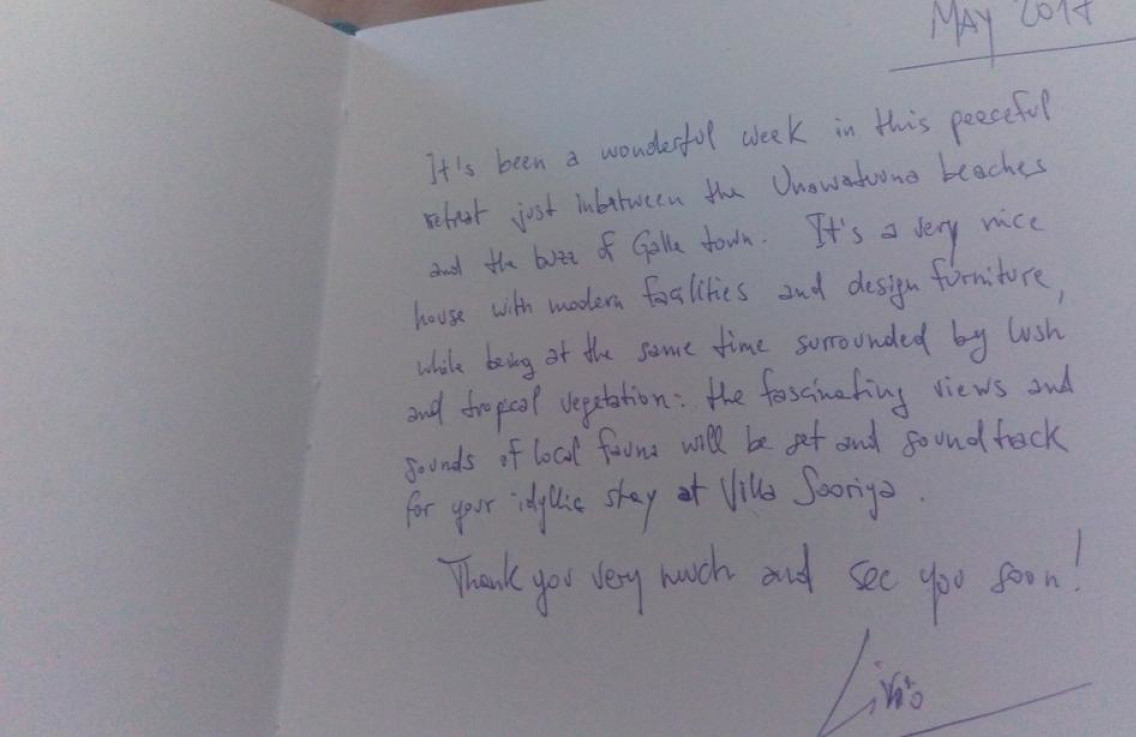 MAY 2017
It's been a wonderful week in this peaceful
retreat just inbetween the Unawatuna beaches
and the buzz of Galle town. It's a very nice
house with modern facilities and design furniture,
while being at the same time surrounded by lush
and tropical vegetation: the fascinating views and
sounds of local fauna will be set and soundtrack
for your idyllic stay at Villa Sooriya.
Thank you very much and see you soon!
Livio